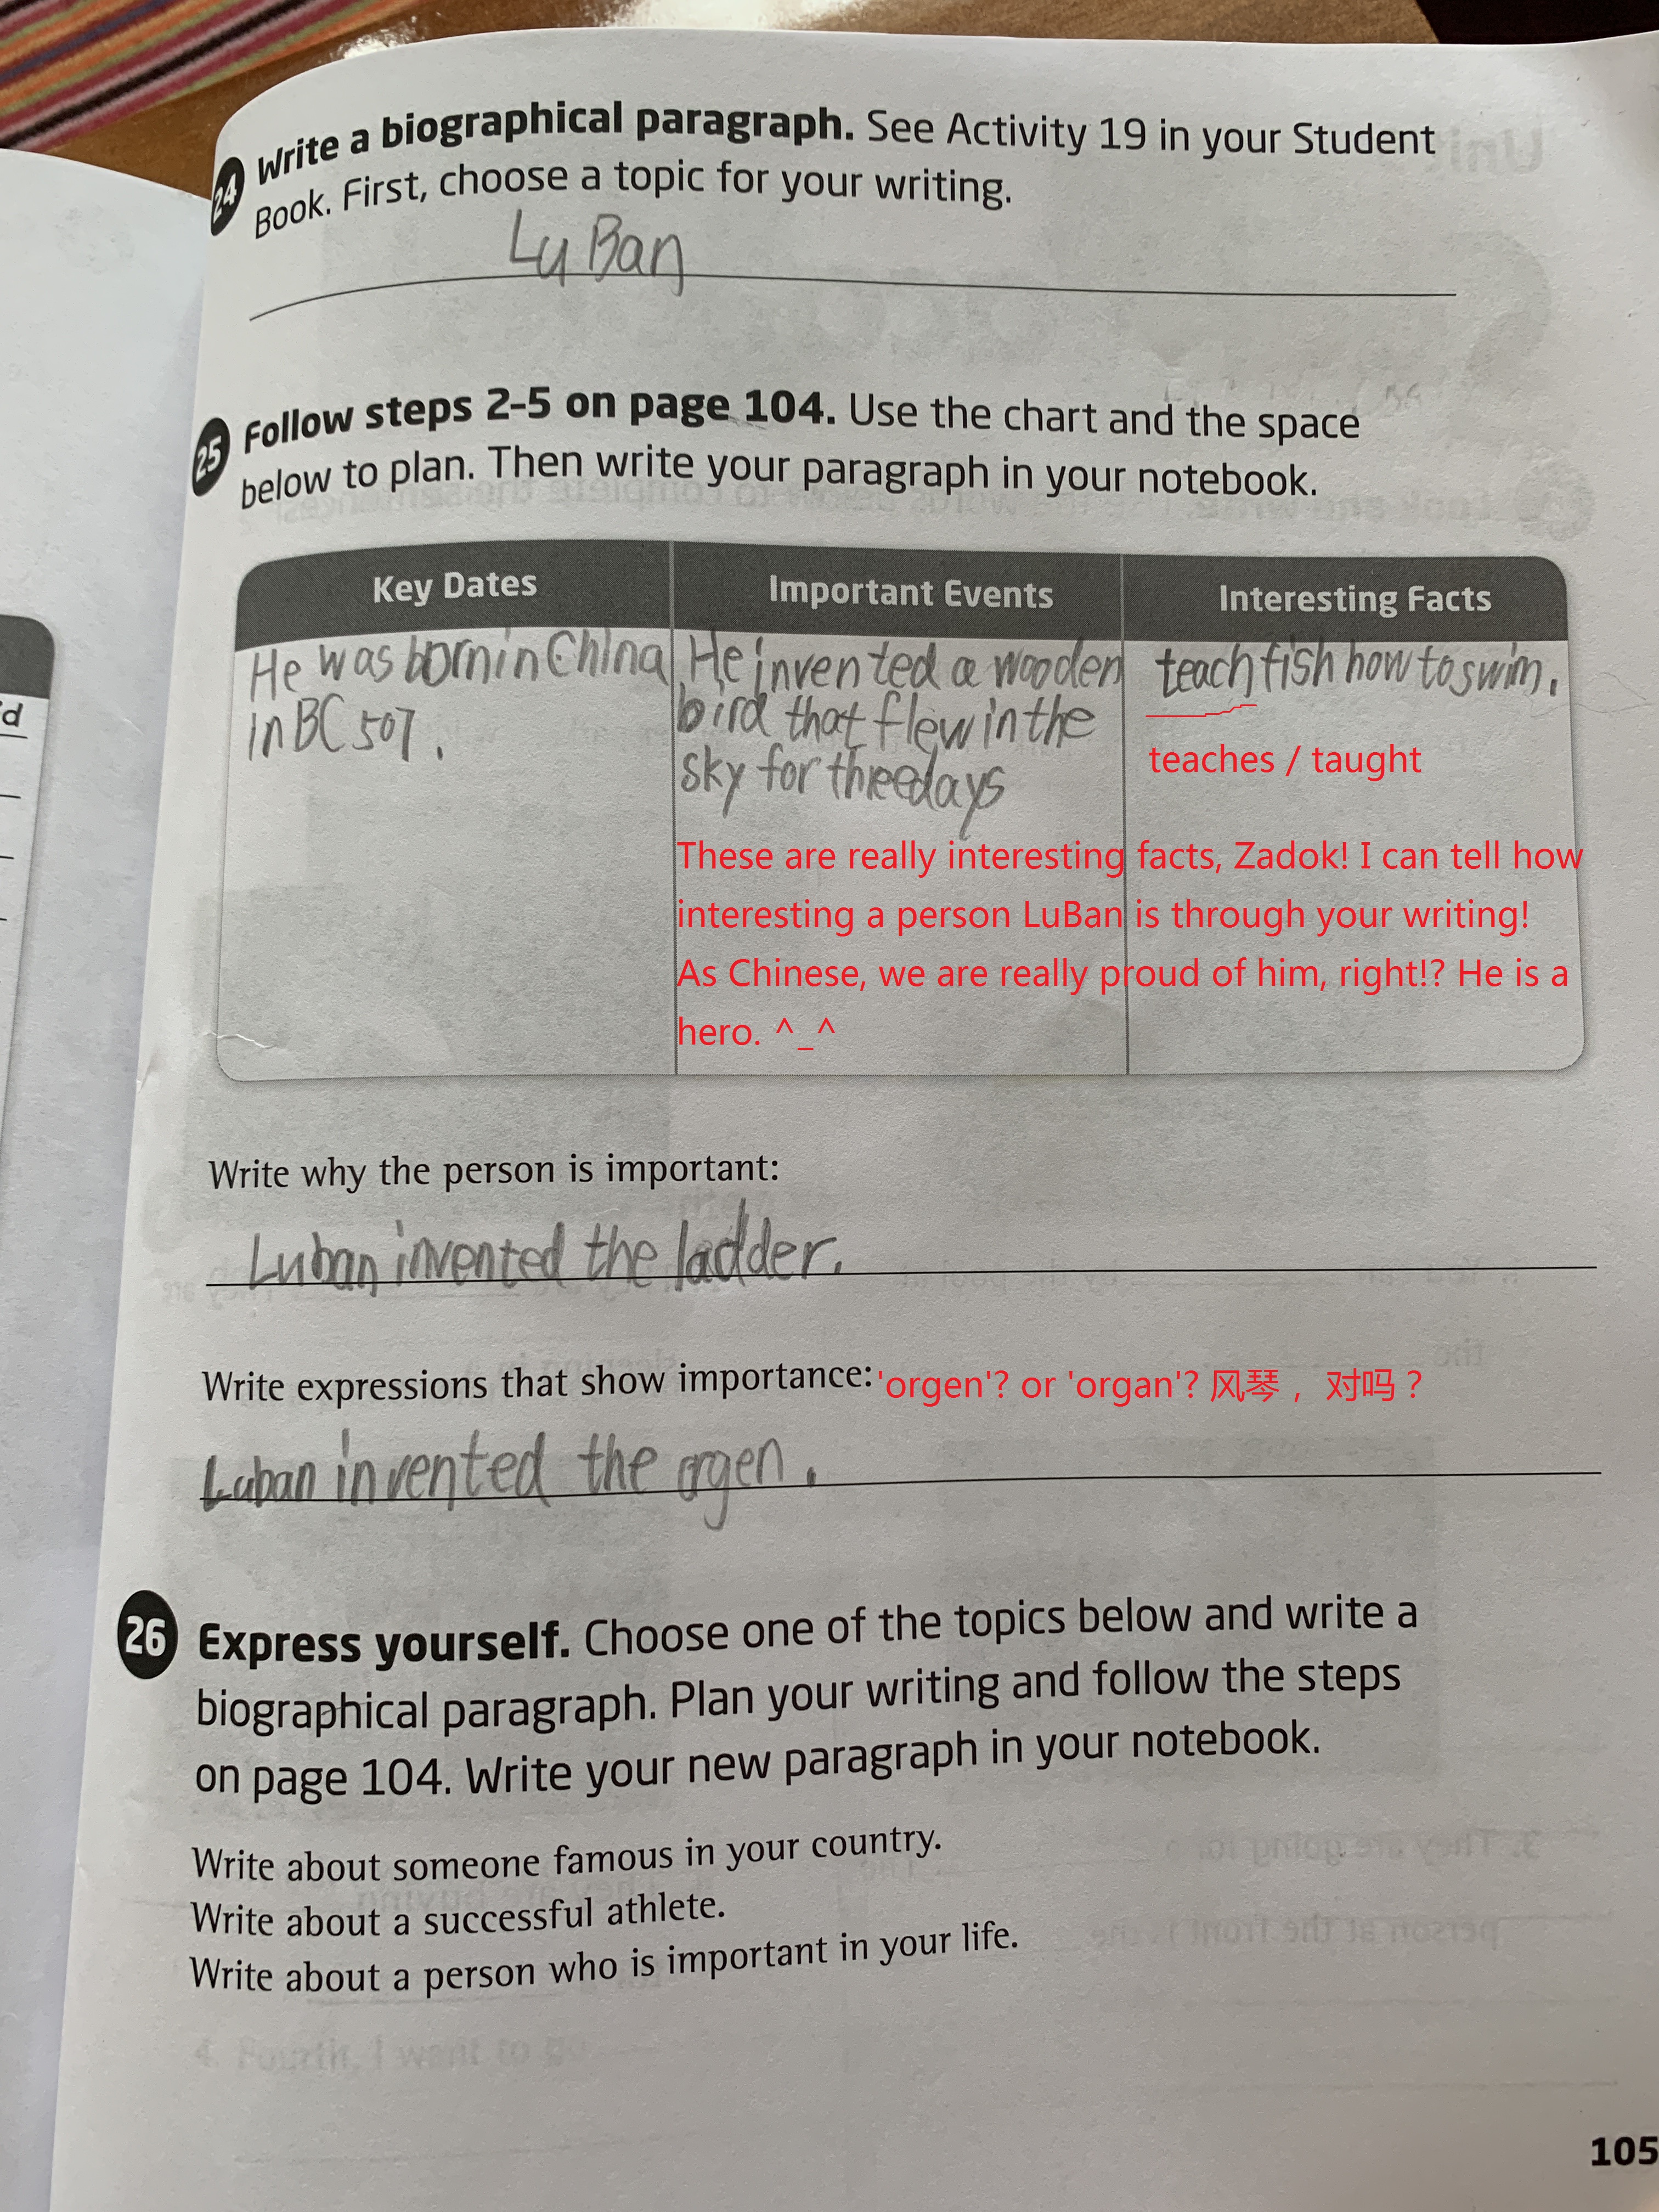 24 Write a biographical paragraph. See Activity 19 in your Student
Book. First, choose a topic for your writing.
Lu Ban
25 Follow steps 2-5 on page 104. Use the chart and the space
below to plan. Then write your paragraph in your notebook.
Key Dates
He was born in China
in BC 507.
Important Events
He invented a wooden
bird that flew in the
sky for three days
Interesting Facts
teach fish how to swim.
teaches / taught
These are really interesting facts, Zadok! I can tell how
interesting a person LuBan is through your writing!
As Chinese, we are really proud of him, right!? He is a
hero. ^_^
Write why the person is important:
Luban invented the ladder.
Write expressions that show importance: 'orgen'? or 'organ'? 风琴，对吗？
Luban invented the orgen.
26 Express yourself. Choose one of the topics below and write a
biographical paragraph. Plan your writing and follow the steps
on page 104. Write your new paragraph in your notebook.
Write about someone famous in your country.
Write about a successful athlete.
Write about a person who is important in your life.
105